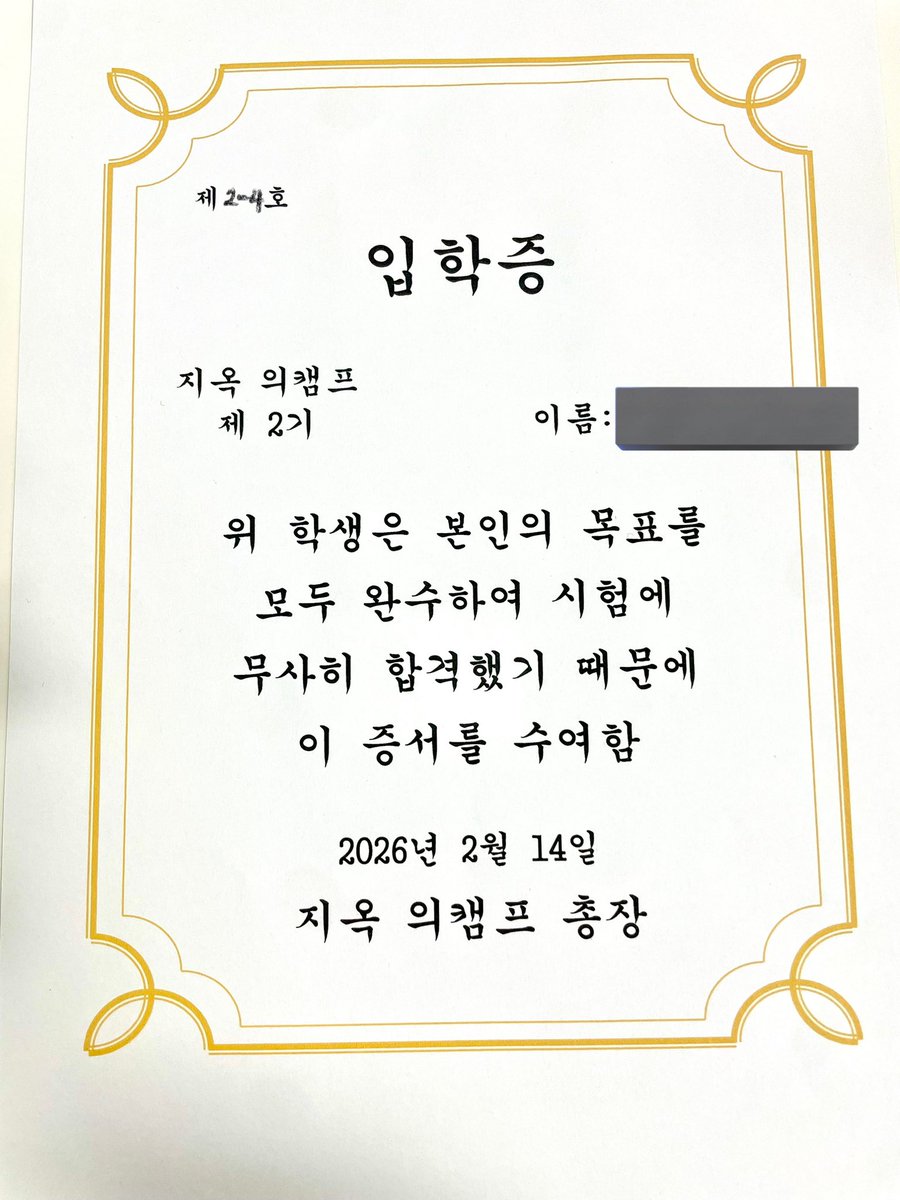 제 2-4호
입학증
지옥 의캠프
제 2기
이름:
위 학생은 본인의 목표를
모두 완수하여 시험에
무사히 합격했기 때문에
이 증서를 수여함
2026년 2월 14일
지옥 의캠프 총장